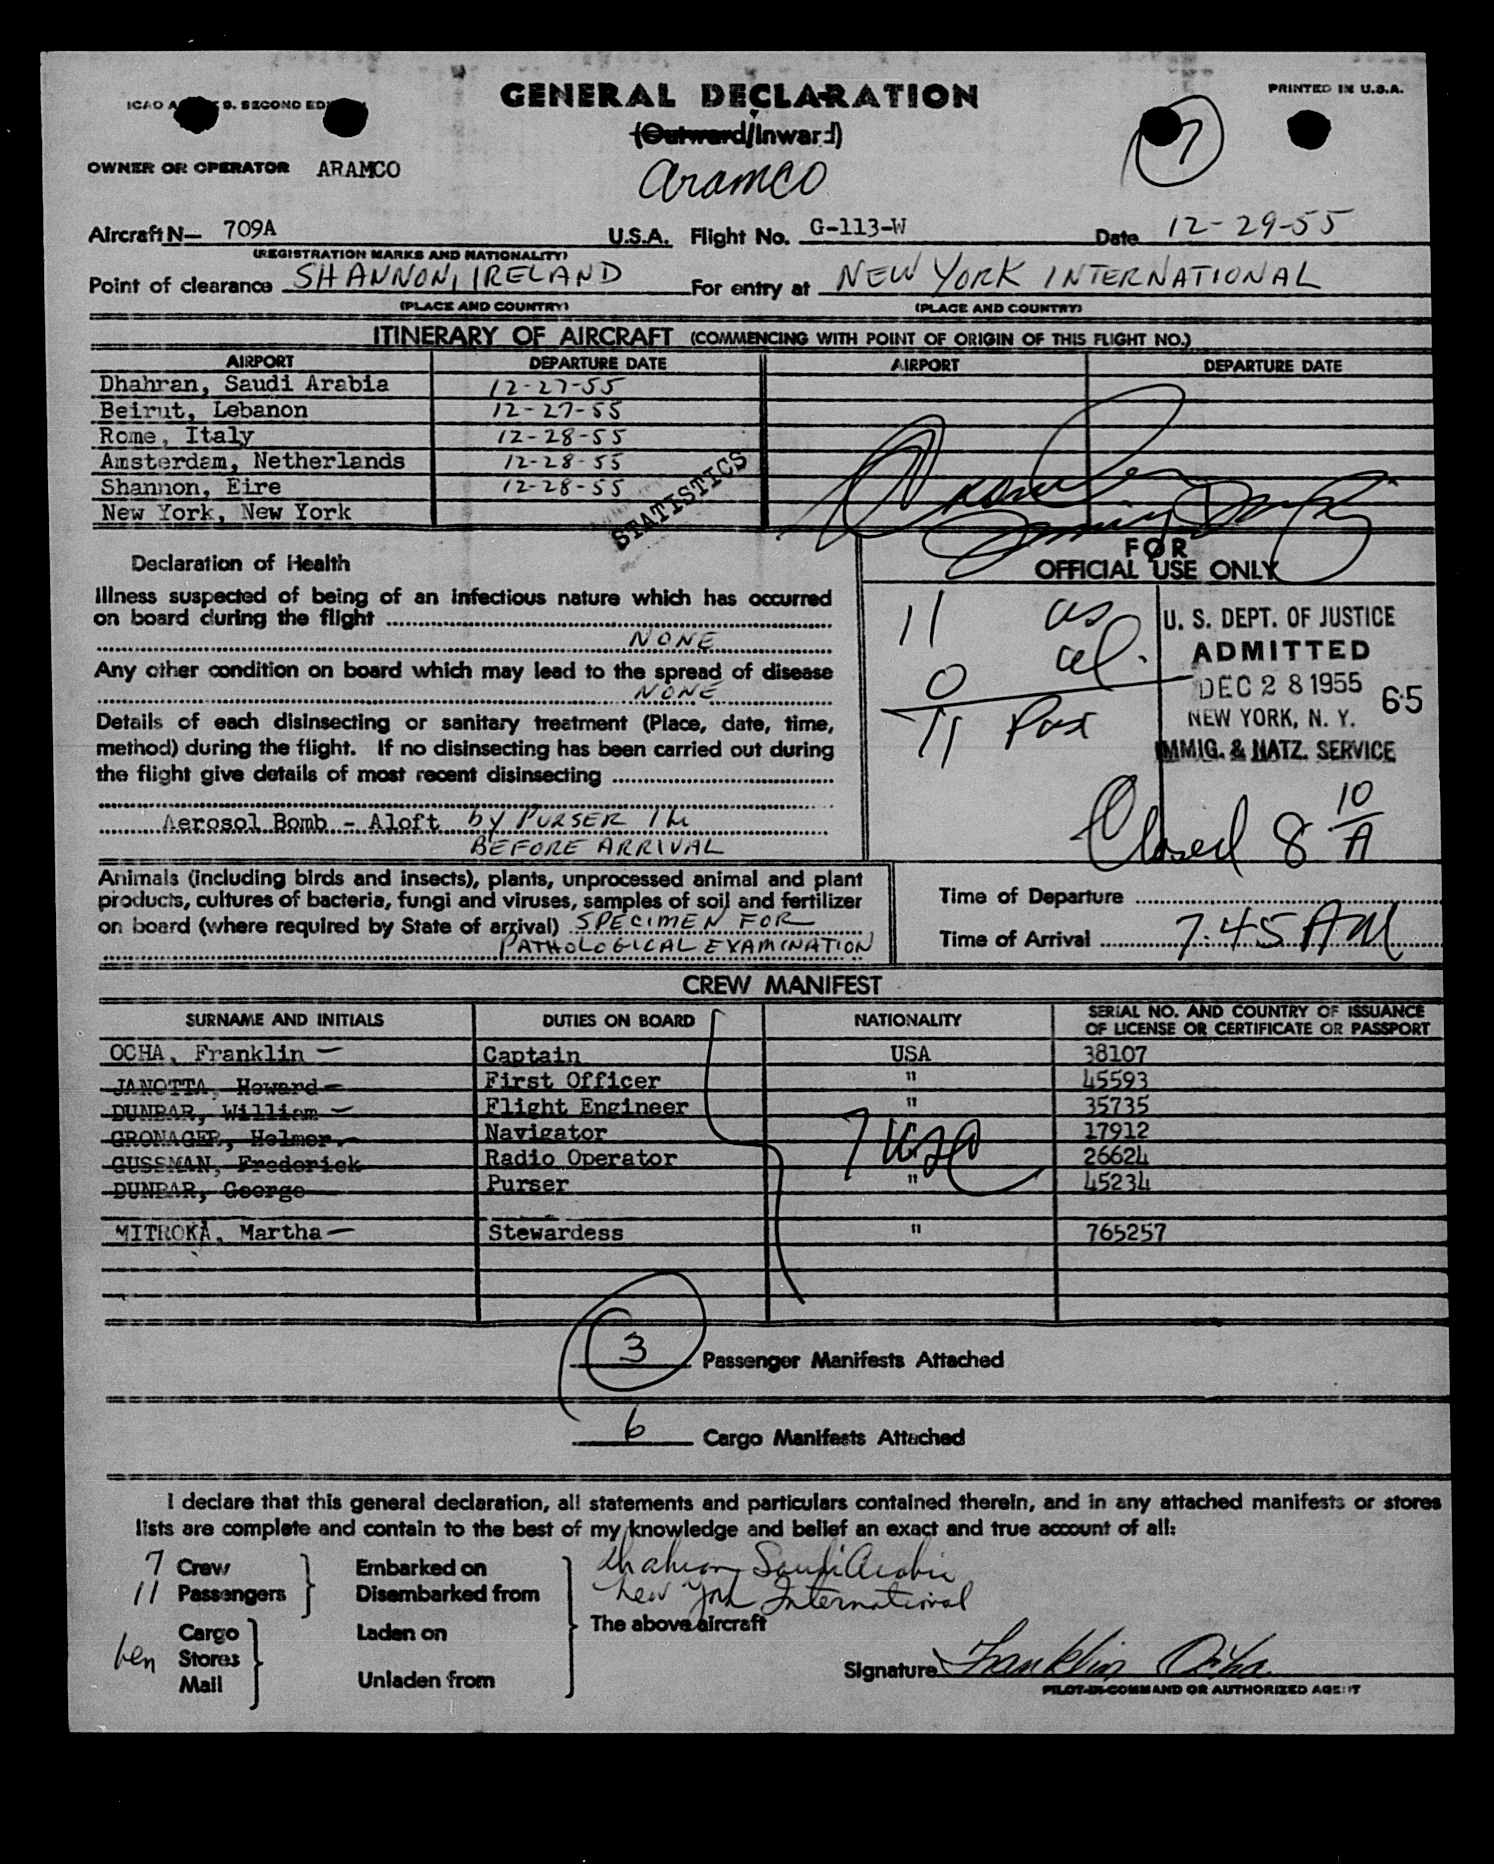 ICAO A S. SECOND ED
GENERAL DECLARATION
PRINTED IN U.S.A.
(Outward/Inward)
7
OWNER OR OPERATOR ARAMCO
Aramco
Aircraft N— 709A U.S.A. Flight No. G-113-W Date 12-29-55
(REGISTRATION MARKS AND NATIONALITY)
Point of clearance SHANNON, IRELAND For entry at NEW YORK INTERNATIONAL
(PLACE AND COUNTRY) (PLACE AND COUNTRY)
ITINERARY OF AIRCRAFT (COMMENCING WITH POINT OF ORIGIN OF THIS FLIGHT NO.)
AIRPORT DEPARTURE DATE AIRPORT DEPARTURE DATE
Dhahran, Saudi Arabia 12-27-55
Beirut, Lebanon 12-27-55
Rome, Italy 12-28-55
Amsterdam, Netherlands 12-28-55
Shannon, Eire 12-28-55
New York, New York
STATISTICS
Declaration of Health
Illness suspected of being of an infectious nature which has occurred
on board during the flight
NONE
Any other condition on board which may lead to the spread of disease
NONE
Details of each disinsecting or sanitary treatment (Place, date, time,
method) during the flight. If no disinsecting has been carried out during
the flight give details of most recent disinsecting
Aerosol Bomb - Aloft by PURSER 1 h
BEFORE ARRIVAL
FOR
OFFICIAL USE ONLY
11 us
0 al.
11 Pax
U. S. DEPT. OF JUSTICE
ADMITTED
DEC 28 1955 65
NEW YORK, N. Y.
IMMIG. & NATZ. SERVICE
Closed 8 10/A
Animals (including birds and insects), plants, unprocessed animal and plant
products, cultures of bacteria, fungi and viruses, samples of soil and fertilizer
on board (where required by State of arrival) SPECIMEN FOR
PATHOLOGICAL EXAMINATION
Time of Departure
Time of Arrival 7:45 AM
CREW MANIFEST
SURNAME AND INITIALS DUTIES ON BOARD NATIONALITY SERIAL NO. AND COUNTRY OF ISSUANCE
OF LICENSE OR CERTIFICATE OR PASSPORT
OCHA, Franklin Captain USA 38107
JANOTTA, Howard First Officer " 45593
DUNBAR, William Flight Engineer " 35735
GRONAGER, Helmer Navigator 17912
7 USA
GUSSMAN, Frederick Radio Operator 26624
DUNBAR, George Purser " 45234
MITROKA, Martha Stewardess " 765257
3 Passenger Manifests Attached
6 Cargo Manifests Attached
I declare that this general declaration, all statements and particulars contained therein, and in any attached manifests or stores
lists are complete and contain to the best of my knowledge and belief an exact and true account of all:
7 Crew Embarked on Dhahran Saudi Arabia
11 Passengers Disembarked from New York International
The above aircraft
Cargo Laden on
Stores
Mail Unladen from
Signature Franklin Ocha
PILOT-IN-COMMAND OR AUTHORIZED AGENT